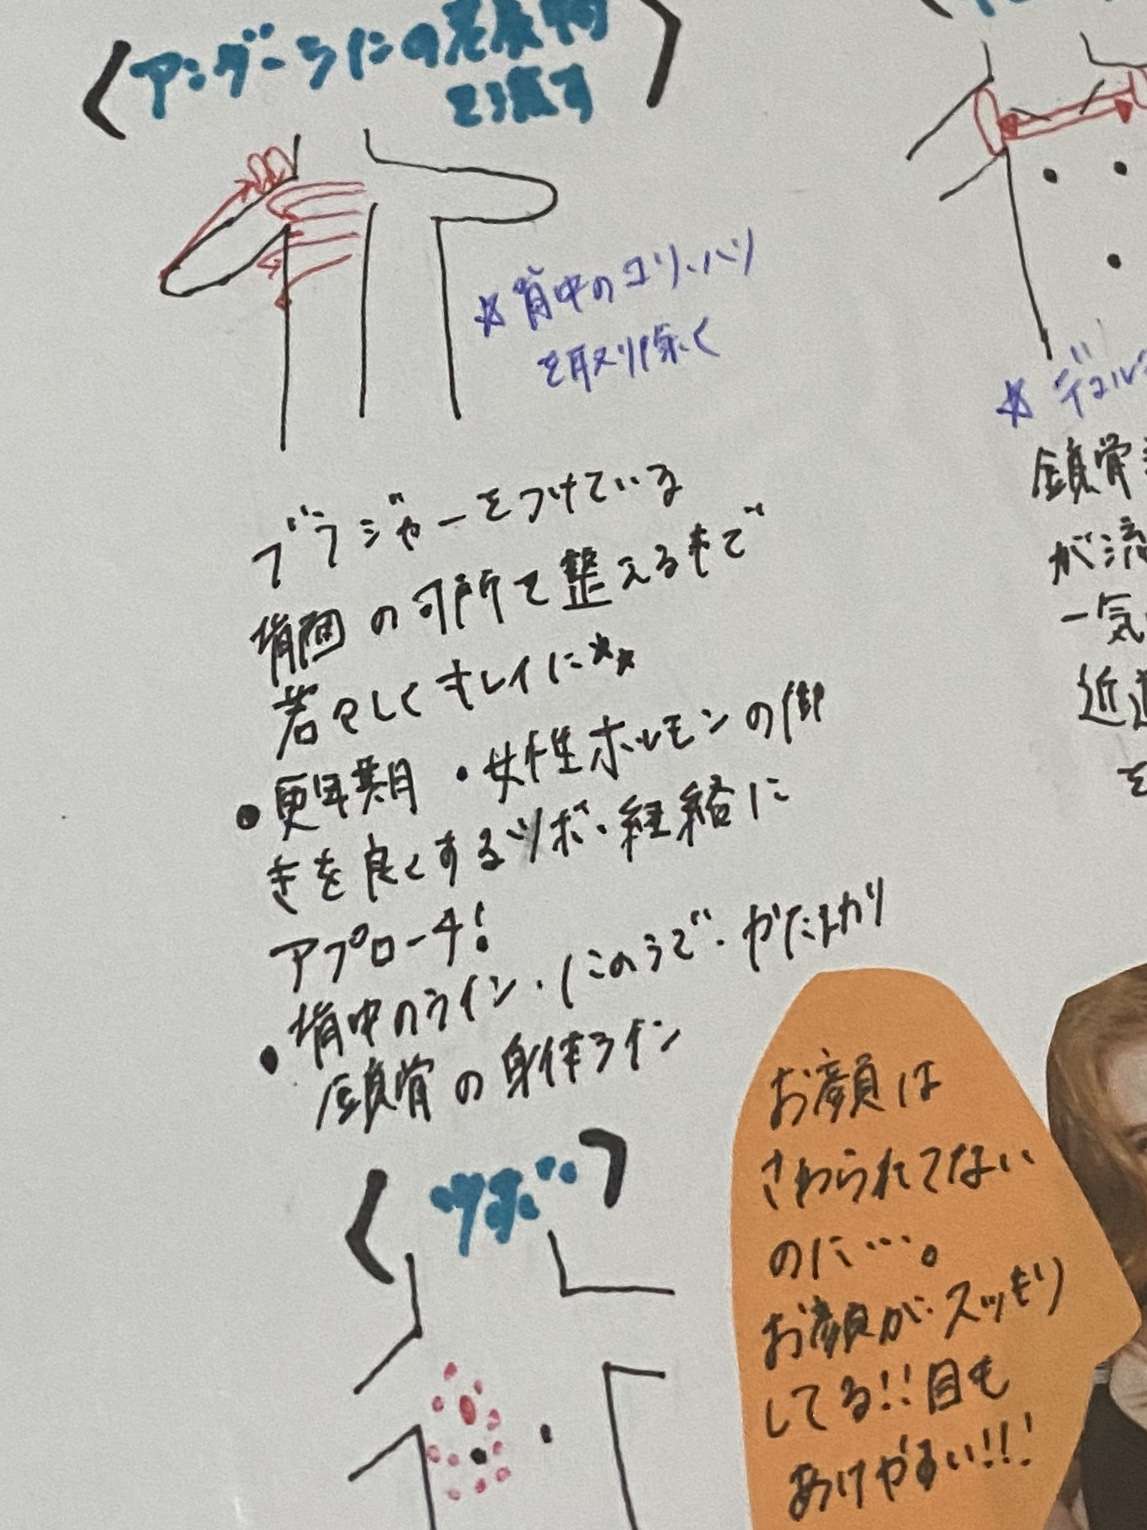 アンダーラインの老廃物
を流す
☆背中のコリ、ハリ
を取り除く
ブラジャーをつけている
背面の
若々しくキレイに☆☆
●更年期・女性ホルモンの働
きを良くするツボ・経絡に
アプローチ!
●背中のライン・にのうで・かたまわり
鎖骨の身体ライン
ツボ
☆デコル
鎖骨
が流
一気
近道
を
お顔は
さわられてない
のに…。
お顔がスッキリ
してる!!目も
あけやすい!!!